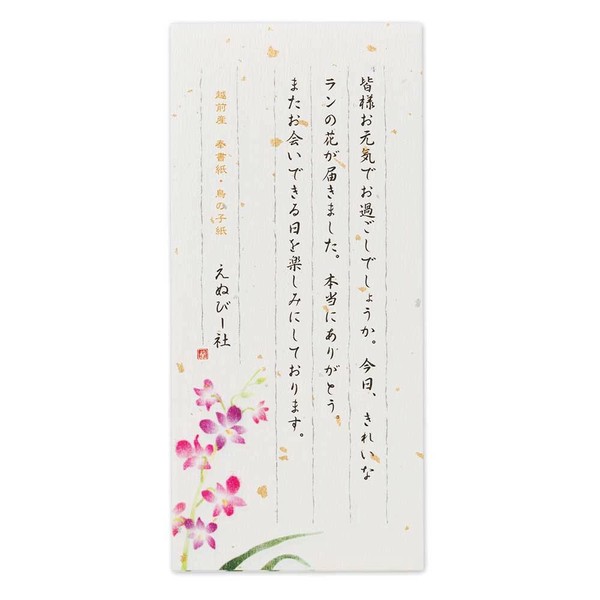 皆様お元気でお過ごしでしょうか。今日、きれいな
ランの花が届きました。本当にありがとう。
またお会いできる日を楽しみにしております。
越前産　奉書紙・鳥の子紙
えぬびー社